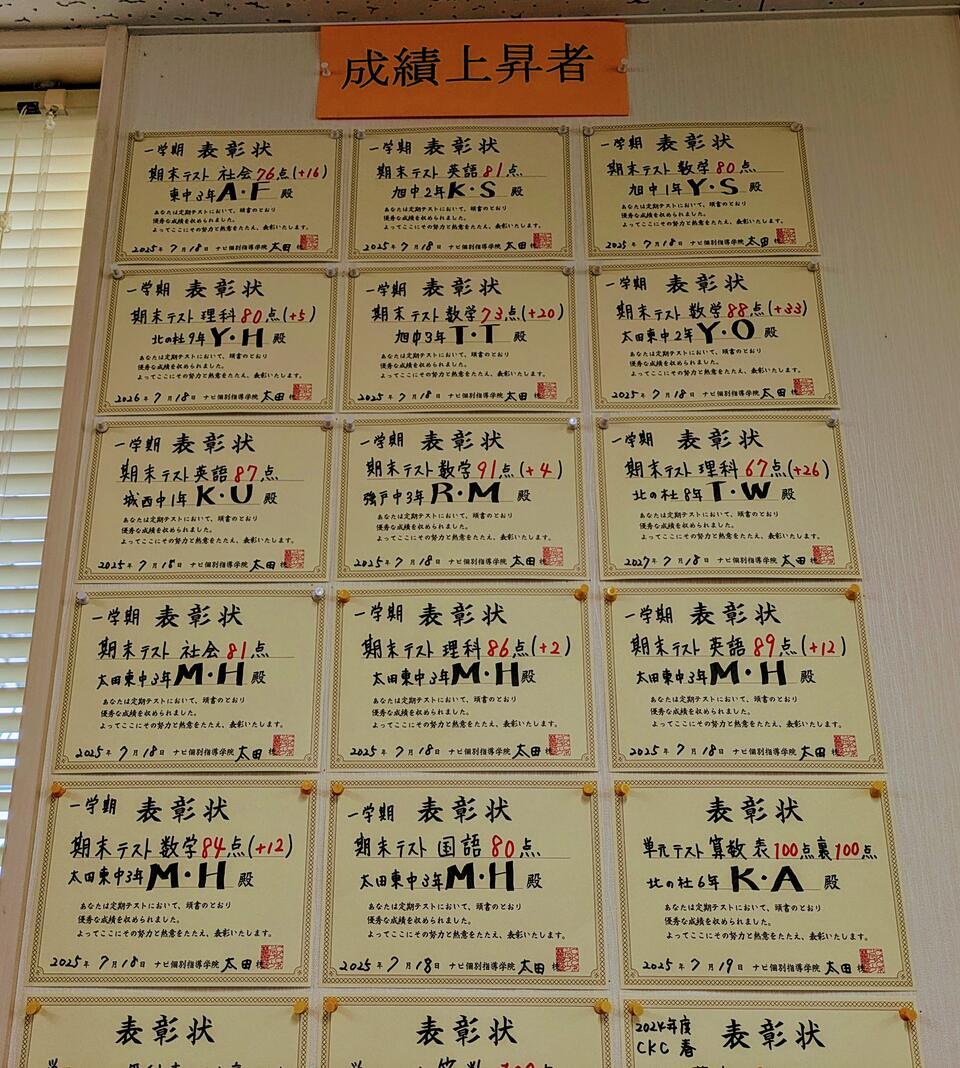 成績上昇者
一学期 表彰状
期末テスト 社会 76点(+16)
東中3年 A・F 殿
あなたは定期テストにおいて、頭書のとおり
優秀な成績を収められました。
よってここにその努力と熱意をたたえ、表彰いたします。
2025年 7月18日 ナビ個別指導学院 太田校
一学期 表彰状
期末テスト 英語 81点
旭中2年 K・S 殿
あなたは定期テストにおいて、頭書のとおり
優秀な成績を収められました。
よってここにその努力と熱意をたたえ、表彰いたします。
2025年 7月18日 ナビ個別指導学院 太田校
一学期 表彰状
期末テスト 数学 80点
旭中1年 Y・S 殿
あなたは定期テストにおいて、頭書のとおり
優秀な成績を収められました。
よってここにその努力と熱意をたたえ、表彰いたします。
2025年 7月18日 ナビ個別指導学院 太田校
一学期 表彰状
期末テスト 理科 80点(+5)
北の杜9年 Y・H 殿
あなたは定期テストにおいて、頭書のとおり
優秀な成績を収められました。
よってここにその努力と熱意をたたえ、表彰いたします。
2026年 7月18日 ナビ個別指導学院 太田校
一学期 表彰状
期末テスト 数学 73点(+20)
旭中3年 T・T 殿
あなたは定期テストにおいて、頭書のとおり
優秀な成績を収められました。
よってここにその努力と熱意をたたえ、表彰いたします。
2025年 7月18日 ナビ個別指導学院 太田校
一学期 表彰状
期末テスト 数学 88点(+33)
太田東中2年 Y・O 殿
あなたは定期テストにおいて、頭書のとおり
優秀な成績を収められました。
よってここにその努力と熱意をたたえ、表彰いたします。
2025年 7月18日 ナビ個別指導学院 太田校
一学期 表彰状
期末テスト 英語 87点
城西中1年 K・U 殿
あなたは定期テストにおいて、頭書のとおり
優秀な成績を収められました。
よってここにその努力と熱意をたたえ、表彰いたします。
2025年 7月18日 ナビ個別指導学院 太田校
一学期 表彰状
期末テスト 数学 91点(+4)
強戸中3年 R・M 殿
あなたは定期テストにおいて、頭書のとおり
優秀な成績を収められました。
よってここにその努力と熱意をたたえ、表彰いたします。
2025年 7月18日 ナビ個別指導学院 太田校
一学期 表彰状
期末テスト 理科 67点(+26)
北の杜8年 T・W 殿
あなたは定期テストにおいて、頭書のとおり
優秀な成績を収められました。
よってここにその努力と熱意をたたえ、表彰いたします。
2027年 7月18日 ナビ個別指導学院 太田校
一学期 表彰状
期末テスト 社会 81点
太田東中3年 M・H 殿
あなたは定期テストにおいて、頭書のとおり
優秀な成績を収められました。
よってここにその努力と熱意をたたえ、表彰いたします。
2025年 7月18日 ナビ個別指導学院 太田校
一学期 表彰状
期末テスト 理科 86点(+2)
太田東中3年 M・H 殿
あなたは定期テストにおいて、頭書のとおり
優秀な成績を収められました。
よってここにその努力と熱意をたたえ、表彰いたします。
2025年 7月18日 ナビ個別指導学院 太田校
一学期 表彰状
期末テスト 英語 89点(+12)
太田東中3年 M・H 殿
あなたは定期テストにおいて、頭書のとおり
優秀な成績を収められました。
よってここにその努力と熱意をたたえ、表彰いたします。
2025年 7月18日 ナビ個別指導学院 太田校
一学期 表彰状
期末テスト 数学 84点(+12)
太田東中3年 M・H 殿
あなたは定期テストにおいて、頭書のとおり
優秀な成績を収められました。
よってここにその努力と熱意をたたえ、表彰いたします。
2025年 7月18日 ナビ個別指導学院 太田校
一学期 表彰状
期末テスト 国語 80点
太田東中3年 M・H 殿
あなたは定期テストにおいて、頭書のとおり
優秀な成績を収められました。
よってここにその努力と熱意をたたえ、表彰いたします。
2025年 7月18日 ナビ個別指導学院 太田校
表彰状
単元テスト 算数 表100点裏100点
北の杜6年 K・A 殿
あなたは定期テストにおいて、頭書のとおり
優秀な成績を収められました。
よってここにその努力と熱意をたたえ、表彰いたします。
2025年 7月19日 ナビ個別指導学院 太田校
表彰状
表彰状
2024年度
CKC 春 表彰状